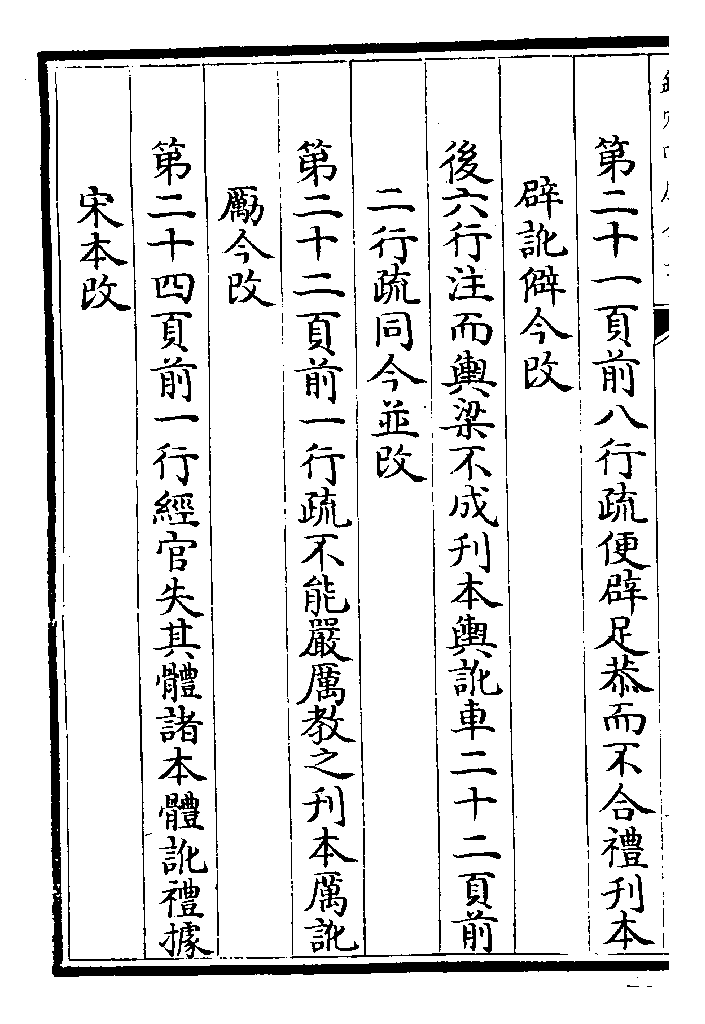 第二十一頁前八行疏便辟足恭而不合禮刊本
辟訛僻今改
後六行注而輿梁不成刊本輿訛車二十二頁前
二行疏同今並改
第二十二頁前一行疏不能嚴厲教之刊本厲訛
勵今改
第二十四頁前一行經官失其體諸本體訛禮據
宋本改